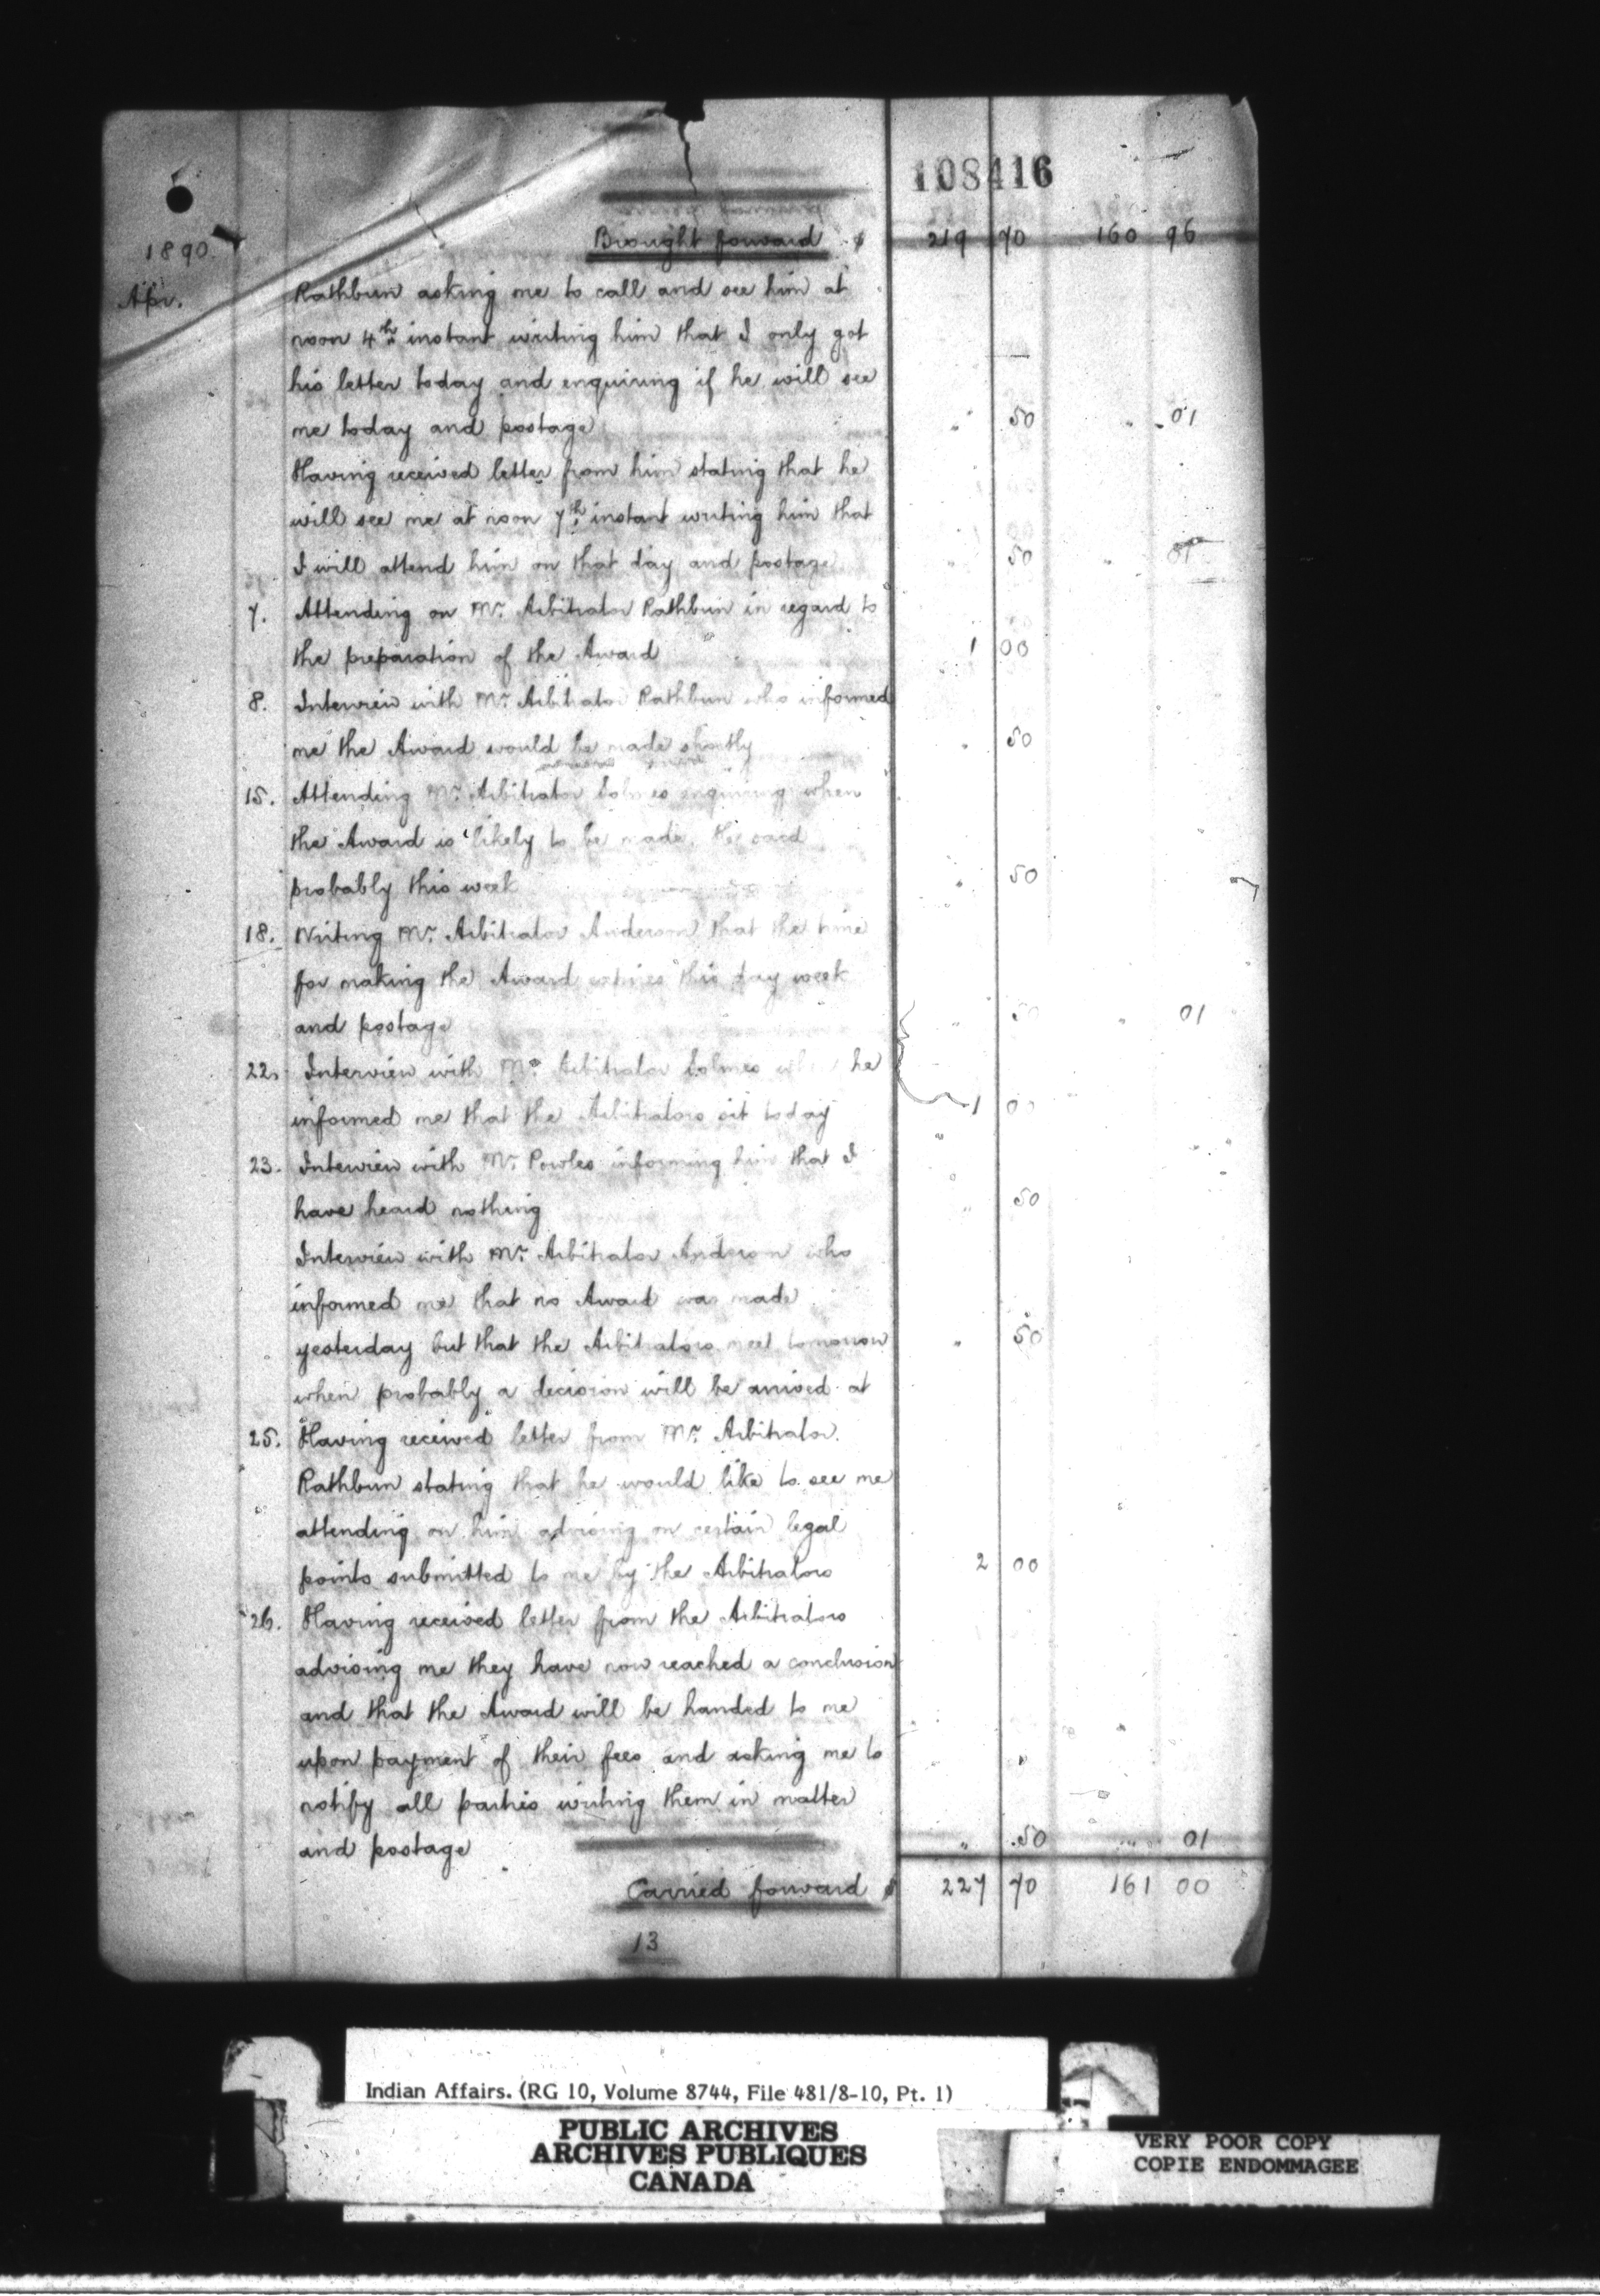 108416
1890
Brought forward $ 219 70 160 96
Apr. Rathbun asking me to call and see him at
noon 4th instant writing him that I only got
his letter today and enquiring if he will see
me today and postage " 50 " 01
Having received letter from him stating that he
will see me at noon 7th instant writing him that
I will attend him on that day and postage " 50 " 01
7. Attending on Mr. Arbitrator Rathbun in regard to
the preparation of the Award 1 00
8. Interview with Mr. Arbitrator Rathbun who informed
me the Award would be made shortly " 50
15. Attending Mr. Arbitrator Holmes enquiring when
the Award is likely to be made. He said
probably this week " 50
18. Writing Mr. Arbitrator Anderson that the time
for making the Award expires this day week
and postage " 50 " 01
22. Interview with Mr. Arbitrator Holmes when he
informed me that the Arbitrators sit today 1 00
23. Interview with Mr. Powles informing him that I
have heard nothing " 50
Interview with Mr. Arbitrator Anderson who
informed me that no Award was made
yesterday but that the Arbitrators meet tomorrow " 50
when probably a decision will be arrived at
25. Having received letter from Mr. Arbitrator
Rathbun stating that he would like to see me
attending on him advising on certain legal
points submitted to me by the Arbitrators 2 00
26. Having received letter from the Arbitrators
advising me they have now reached a conclusion
and that the Award will be handed to me
upon payment of their fees and asking me to
notify all parties writing them in matter
and postage " 50 " 01
Carried forward $ 227 70 161 00
13
Indian Affairs. (RG 10, Volume 8744, File 481/8-10, Pt. 1)
PUBLIC ARCHIVES
ARCHIVES PUBLIQUES
CANADA
VERY POOR COPY
COPIE ENDOMMAGEE